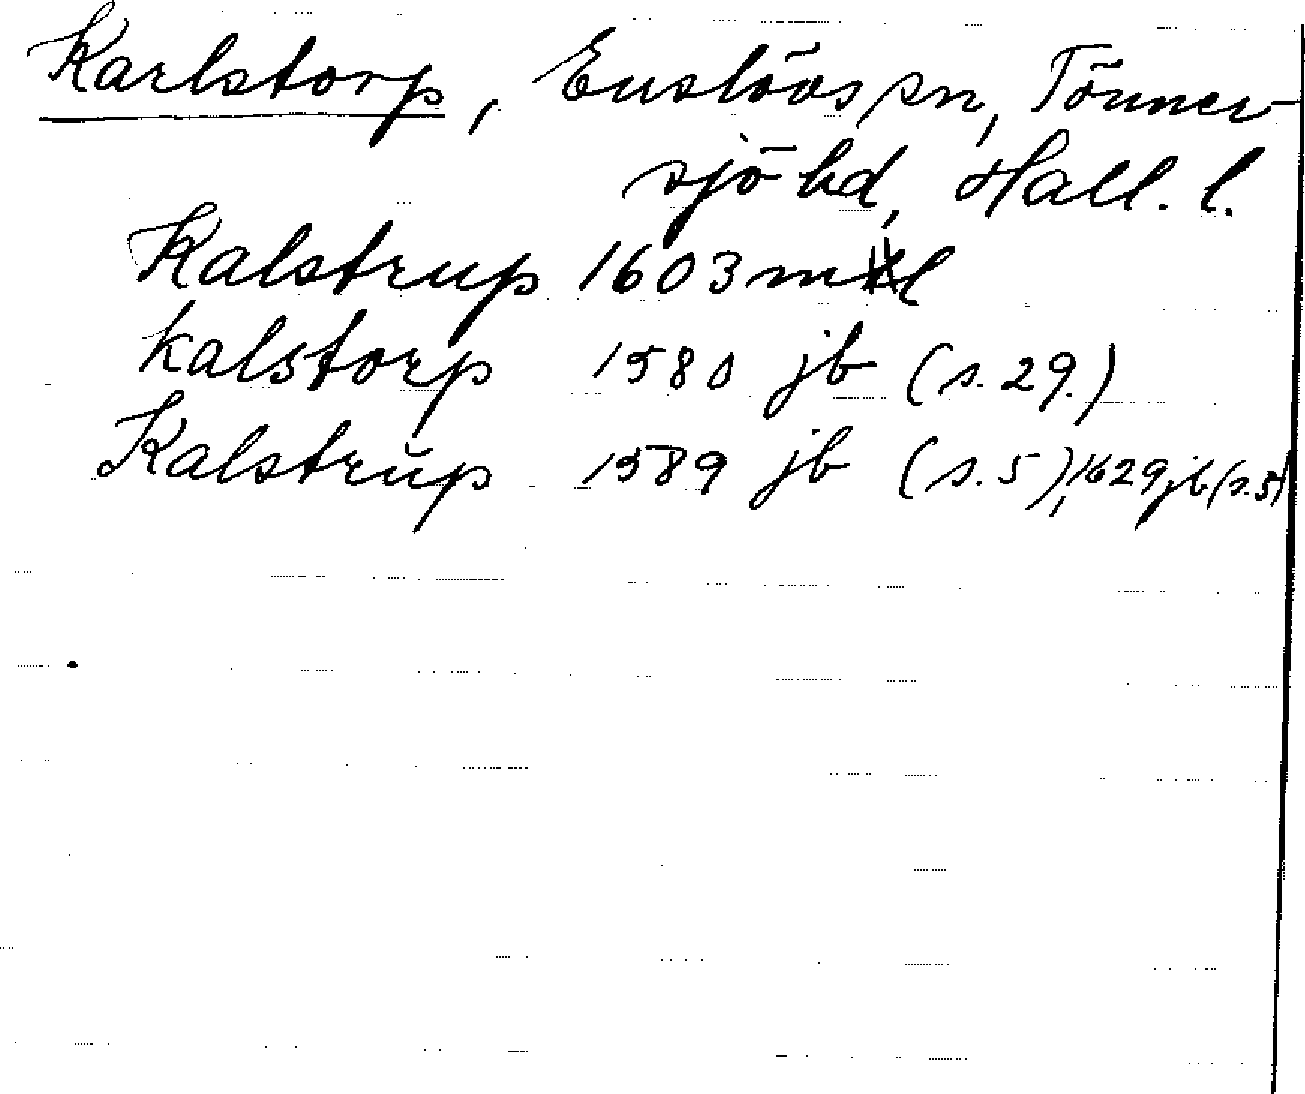 Karlstorp, Enslövs sn, Tönner-
sjö hd, Hall. l.
Kalstrup 1603 mtl
kalstorp 1580 jb (s. 29.)
Kalstrŭp 1589 jb (s. 5), 1629 jb (s. 5)